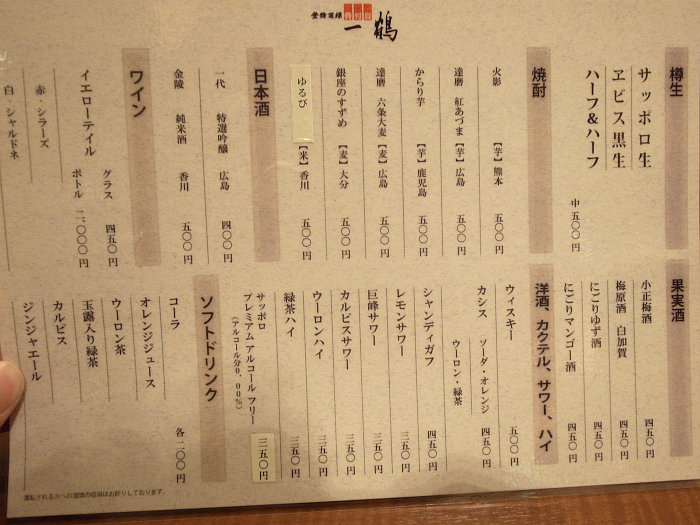 登録商標 骨付鳥
一鶴
樽生
サッポロ生
ヱビス黒生
ハーフ&ハーフ
中 五〇〇円
焼酎
火影 【芋】 熊本 五〇〇円
達磨 紅あづま 【芋】 広島 五〇〇円
からり芋 【芋】 鹿児島 五〇〇円
達磨 六条大麦 【麦】 広島 五〇〇円
銀座のすずめ 【麦】 大分 五〇〇円
ゆるび 【米】 香川 五〇〇円
日本酒
一代 特選吟醸 広島 四〇〇円
金陵 純米酒 香川 五〇〇円
ワイン
イエローテイル グラス 四五〇円
ボトル 二、〇〇〇円
赤・シラーズ
白・シャルドネ
果実酒
小正梅酒 四五〇円
梅原酒 白加賀 四五〇円
にごりゆず酒 四五〇円
にごりマンゴー酒 四五〇円
洋酒、カクテル、サワー、ハイ
ウィスキー 五〇〇円
カシス ソーダ・オレンジ 四五〇円
ウーロン・緑茶
シャンディガフ 四五〇円
レモンサワー 三五〇円
巨峰サワー 三五〇円
カルピスサワー 三五〇円
ウーロンハイ 三五〇円
緑茶ハイ 三五〇円
サッポロ
プレミアムアルコールフリー 三五〇円
(アルコール分0.00%)
ソフトドリンク
コーラ 各二〇〇円
オレンジジュース
ウーロン茶
玉露入り緑茶
カルピス
ジンジャエール
運転される方への酒類の提供はお断りしております。